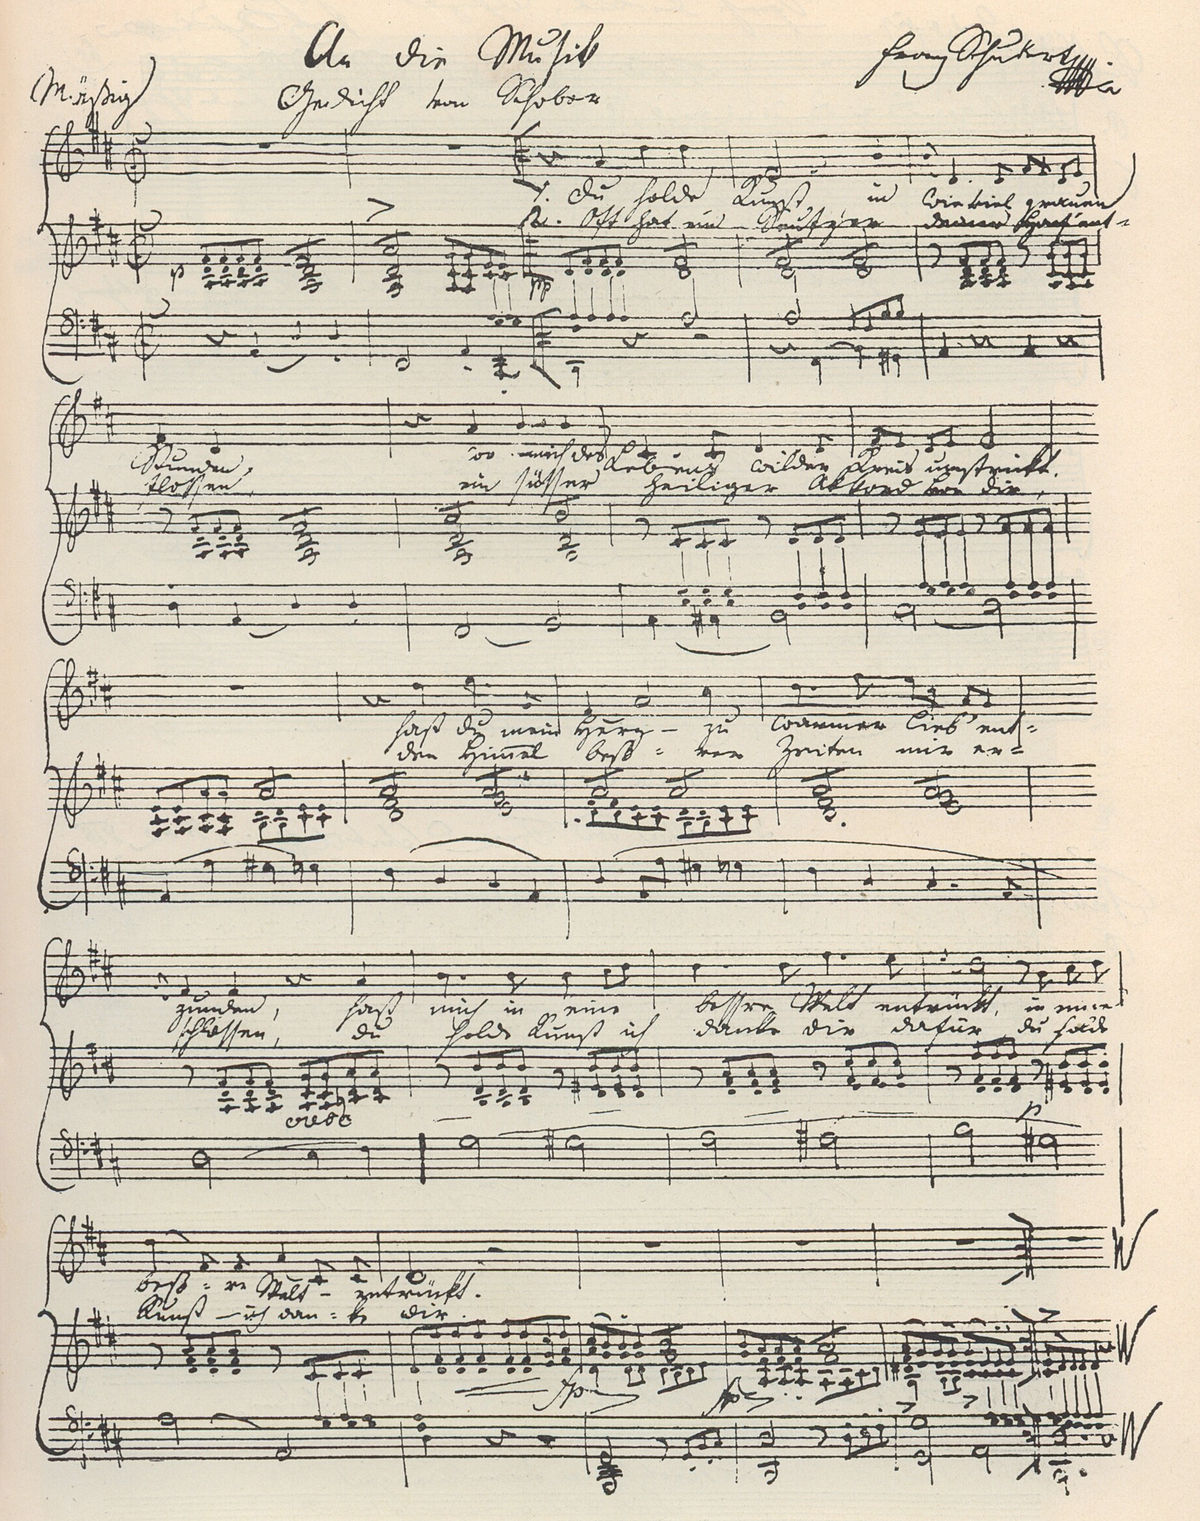 An die Musik
Franz Schubert
Mäßig
Gedicht von Schober
1. Du holde Kunst, in wie viel grauen
2. Oft hat ein Seufzer deiner Harf' ent-
p
pp
Stunden, wo mich des Lebens wilder Kreis umstrickt.
flossen, ein süsser heiliger Akkord von dir,
hast du mein Herz zu warmer Lieb' ent-
den Himmel beß-rer Zeiten mir er-
zunden, hast mich in eine bessre Welt entrückt, in eine
schlossen, du holde Kunst ich danke dir dafür, du holde
cresc
p
beß-re Welt entrückt.
Kunst ich dan-ke dir.
fp
fp